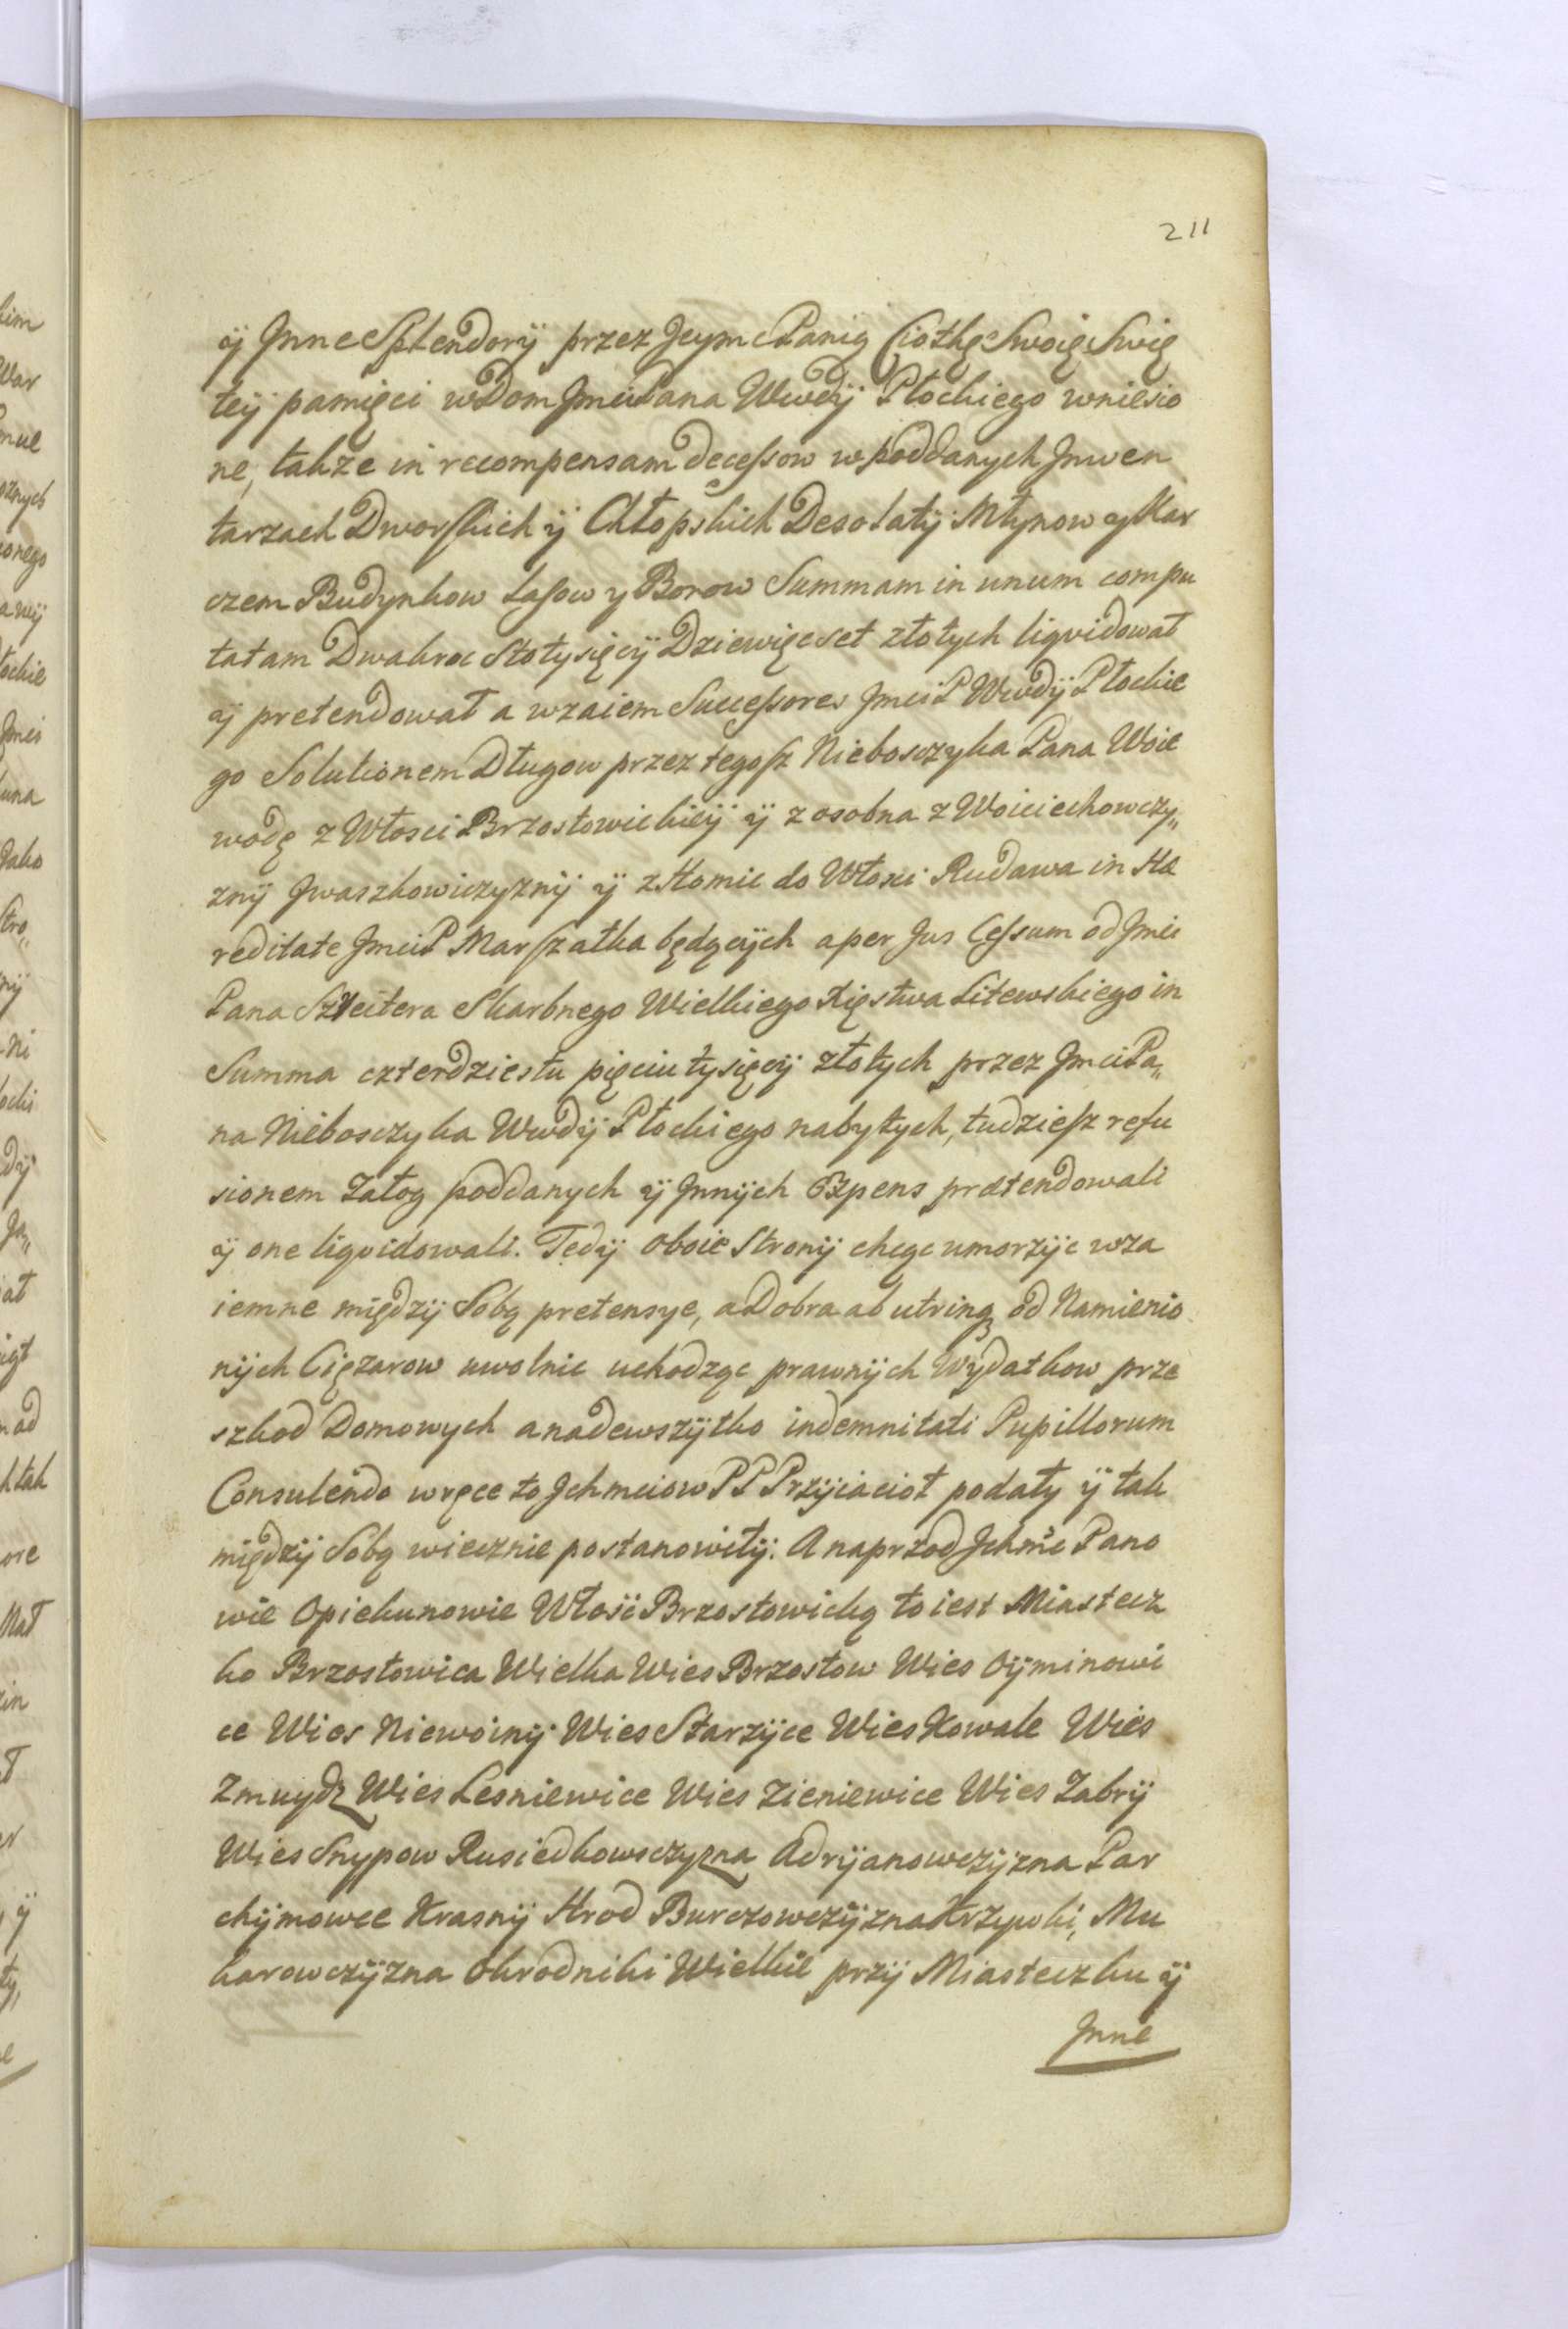 211
ÿ Jnne Splendorÿ przez Jeymc Panią Ciotkę Swoię Swię
teÿ pamięci w Dom Jmci Pana Wwdÿ Płockiego wniesio
ne, takze in recompensam decessow w poddanych Jnwen
tarzach Dworskich ÿ Chłopskich Desolatÿ Młynow y Kar
czem Budynkow Lasow y Borow Summam in unum compu
tatam Dwakroc Stotysięcÿ Dziewięcset złotych liqvidował
ÿ pretendował a wzaiem Successores Jmci P Wwdÿ Płockie
go Solutionem Długow przez tegosz Nieboszczyka Pana Woie
wodę z Włosci Brzostowickieÿ ÿ z osobna z Woiciechowczy„
znÿ Jwaszkowiczyznÿ ÿ z Homic do Włosci Rudawa in Hæ
reditate Jmci P Marszałka będącÿch a per Jus Cessum od Jmci
Pana Szretera Skarbnego Wielkiego Xięstwa Litewskiego in
Summa czterdziestu pięciu tysięcÿ złotych przez Jmci Pa„
na Nieboszczyka Wwdÿ Płockiego nabytych, tudziesz refu
sionem Załog poddanych ÿ Jnnÿch Expens prætendowali
ÿ one liqvidowali. Tedÿ oboie Stronÿ chcąc umorzÿc wza
iemne międzÿ Sobą pretensye, a Dobra ab utrinq od Namienio
nÿch Ciężarow uwolnic uchodząc prawnÿch Wÿdatkow prze
szkod Domowych a nadewszÿtko indemnitati Pupillorum
Consulendo w ręce to Jchmciow PP Przÿiacioł podały ÿ tak
międzÿ Sobą wiecznie postanowiłÿ. A naprzod Jchmc Pano
wie Opiekunowie Włosć Brzostowicką to iest Miastecz
ko Brzostowica Wielka Wies Brzostow Wies Oÿminowi
ce Wios Niewoinÿ Wies Starzÿce Wies Kowale Wies
Zmuydz Wies Lesniewice Wies Zieniewice Wies Zabrÿ
Wies Snypow Rusiedkowsczyzna Adrÿanowczÿzna Par
chÿmowce Krasnÿ Hrod Burczowczÿzna Krzywki, Mu
karowczÿzna Ohrodniki Wielkie przÿ Miasteczku ÿ
Jnne